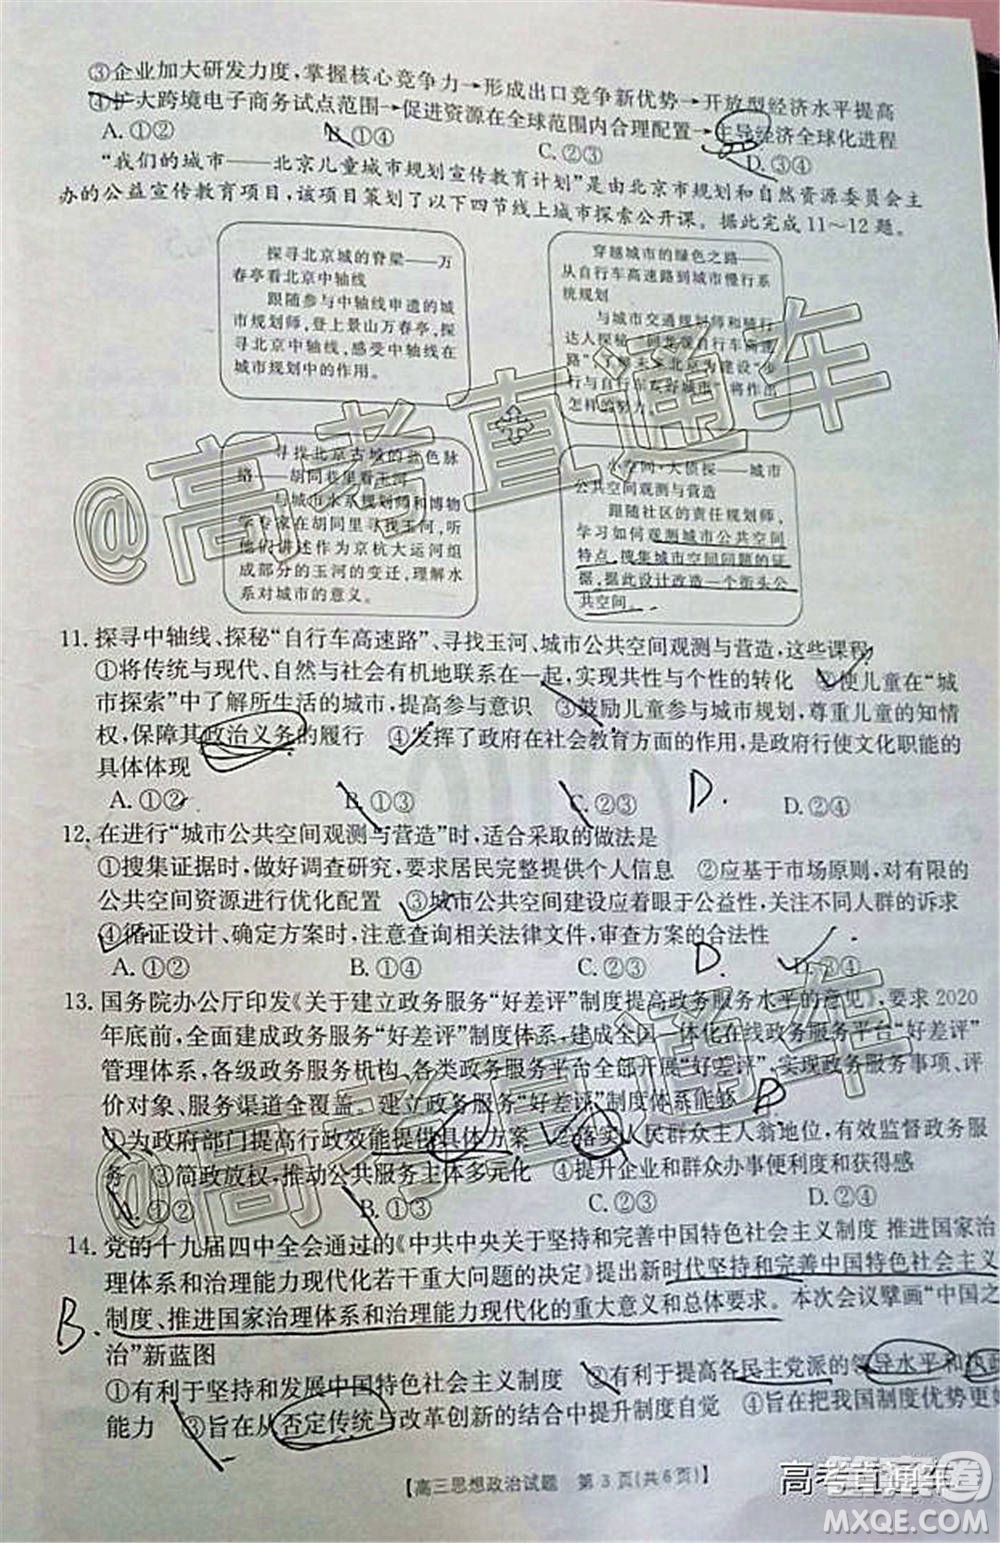 ③企业加大研发力度，掌握核心竞争力→形成出口竞争新优势→开放型经济水平提高
④扩大跨境电子商务试点范围→促进资源在全球范围内合理配置→主导经济全球化进程
A.①② B.①④ C.②③ D.③④
“我们的城市——北京儿童城市规划宣传教育计划”是由北京市规划和自然资源委员会主
办的公益宣传教育项目，该项目策划了以下四节线上城市探索公开课。据此完成11～12题。
探寻北京城的脊梁——万
春亭看北京中轴线
跟随参与中轴线申遗的城
市规划师，登上景山万春亭，探
寻北京中轴线，感受中轴线在
城市规划中的作用。
穿越城市的绿色之路——
从自行车高速路到城市慢行系
统规划
与城市交通规划师和骑行
达人探秘“回龙观自行车高速
路”，了解未来北京为建设“步
行与自行车友好城市”将作出
怎样的努力。
寻找北京古城的蓝色脉
络——胡同巷里看玉河
与城市水系规划师和博物
学专家在胡同里寻找玉河，听
他们讲述作为京杭大运河组
成部分的玉河的变迁，理解水
系对城市的意义。
小空间·大侦探——城市
公共空间观测与营造
跟随社区的责任规划师，
学习如何观测城市公共空间
特点，搜集城市空间问题的证
据，据此设计改造一个街头公
共空间。
11.探寻中轴线、探秘“自行车高速路”、寻找玉河、城市公共空间观测与营造，这些课程
①将传统与现代、自然与社会有机地联系在一起，实现共性与个性的转化 ②使儿童在“城
市探索”中了解所生活的城市，提高参与意识 ③鼓励儿童参与城市规划，尊重儿童的知情
权，保障其政治义务的履行 ④发挥了政府在社会教育方面的作用，是政府行使文化职能的
具体体现
A.①② B.①③ C.②③ D. D.②④
12.在进行“城市公共空间观测与营造”时，适合采取的做法是
①搜集证据时，做好调查研究，要求居民完整提供个人信息 ②应基于市场原则，对有限的
公共空间资源进行优化配置 ③城市公共空间建设应着眼于公益性，关注不同人群的诉求
④循证设计、确定方案时，注意查询相关法律文件，审查方案的合法性
A.①② B.①④ C.②③ D. D.③④
13.国务院办公厅印发《关于建立政务服务“好差评”制度提高政务服务水平的意见》，要求2020
年底前，全面建成政务服务“好差评”制度体系，建成全国一体化在线政务服务平台“好差评”
管理体系，各级政务服务机构、各类政务服务平台全部开展“好差评”，实现政务服务事项、评
价对象、服务渠道全覆盖。建立政务服务“好差评”制度体系能够
①为政府部门提高行政效能提供具体方案 ②落实人民群众主人翁地位，有效监督政务服
务 ③简政放权，推动公共服务主体多元化 ④提升企业和群众办事便利度和获得感
A.①② B.①③ C.②③ D.②④
14.党的十九届四中全会通过的《中共中央关于坚持和完善中国特色社会主义制度 推进国家治
理体系和治理能力现代化若干重大问题的决定》提出新时代坚持和完善中国特色社会主义
B. 制度、推进国家治理体系和治理能力现代化的重大意义和总体要求。本次会议擘画“中国之
治”新蓝图
①有利于坚持和拓展中国特色社会主义制度 ②有利于提高各民主党派的领导水平和执政
能力 ③旨在从否定传统与改革创新的结合中提升制度自觉 ④旨在把我国制度优势更
【高三思想政治试题 第3页（共6页）】
@高考直通车
@高考直通车
高考直通车
MXQE.COM